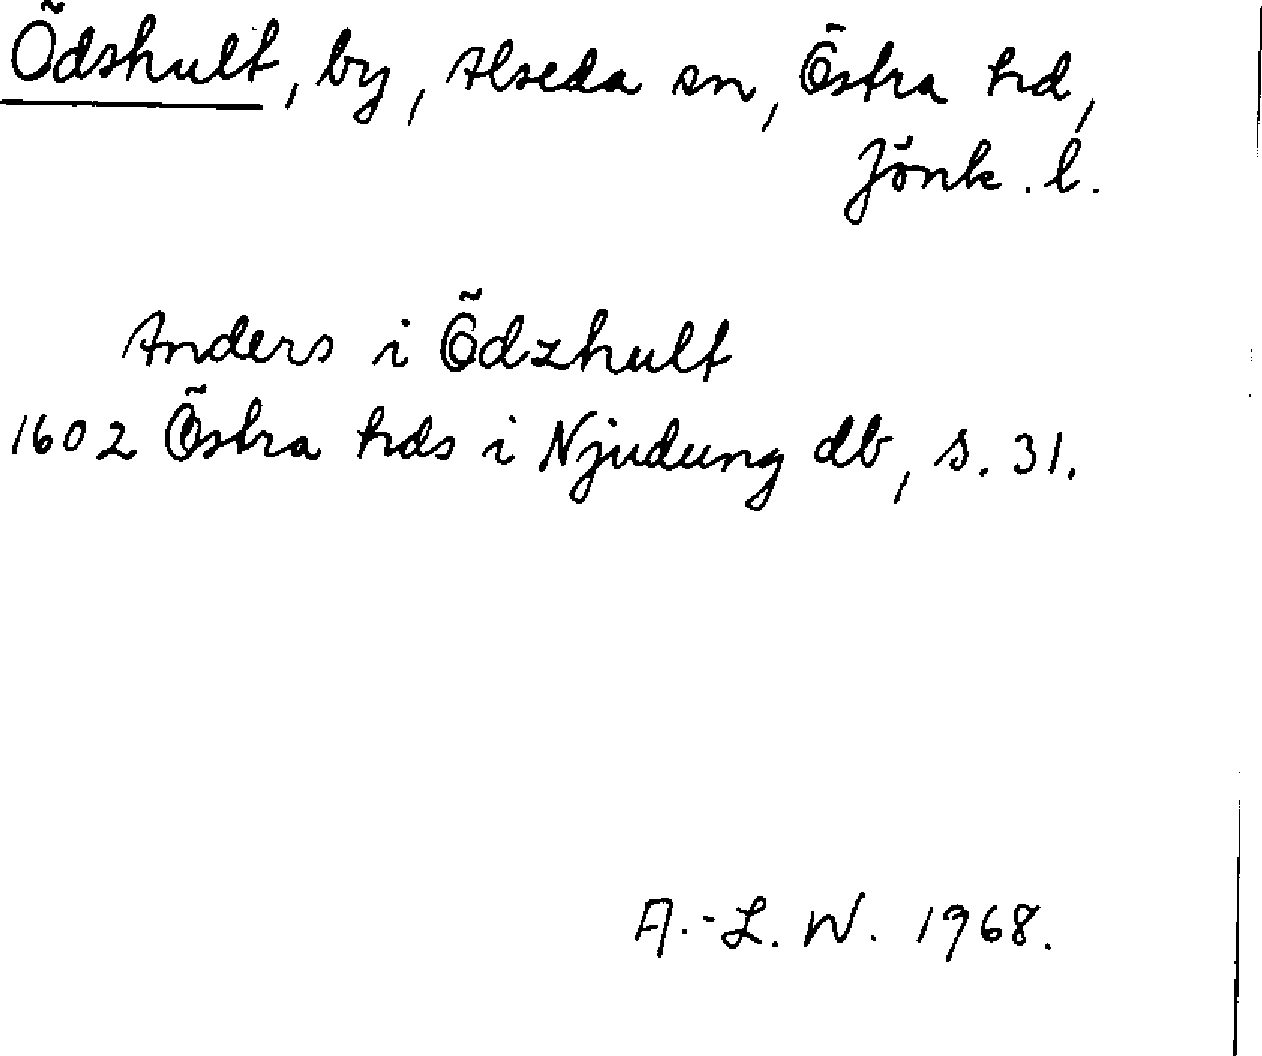 Ödshult, by, Alseda sn, Östra hd,
Jönk. l.
Anders i Ödzhult
1602 Östra hds i Njudung db, s. 31.
A.-L. W. 1968.